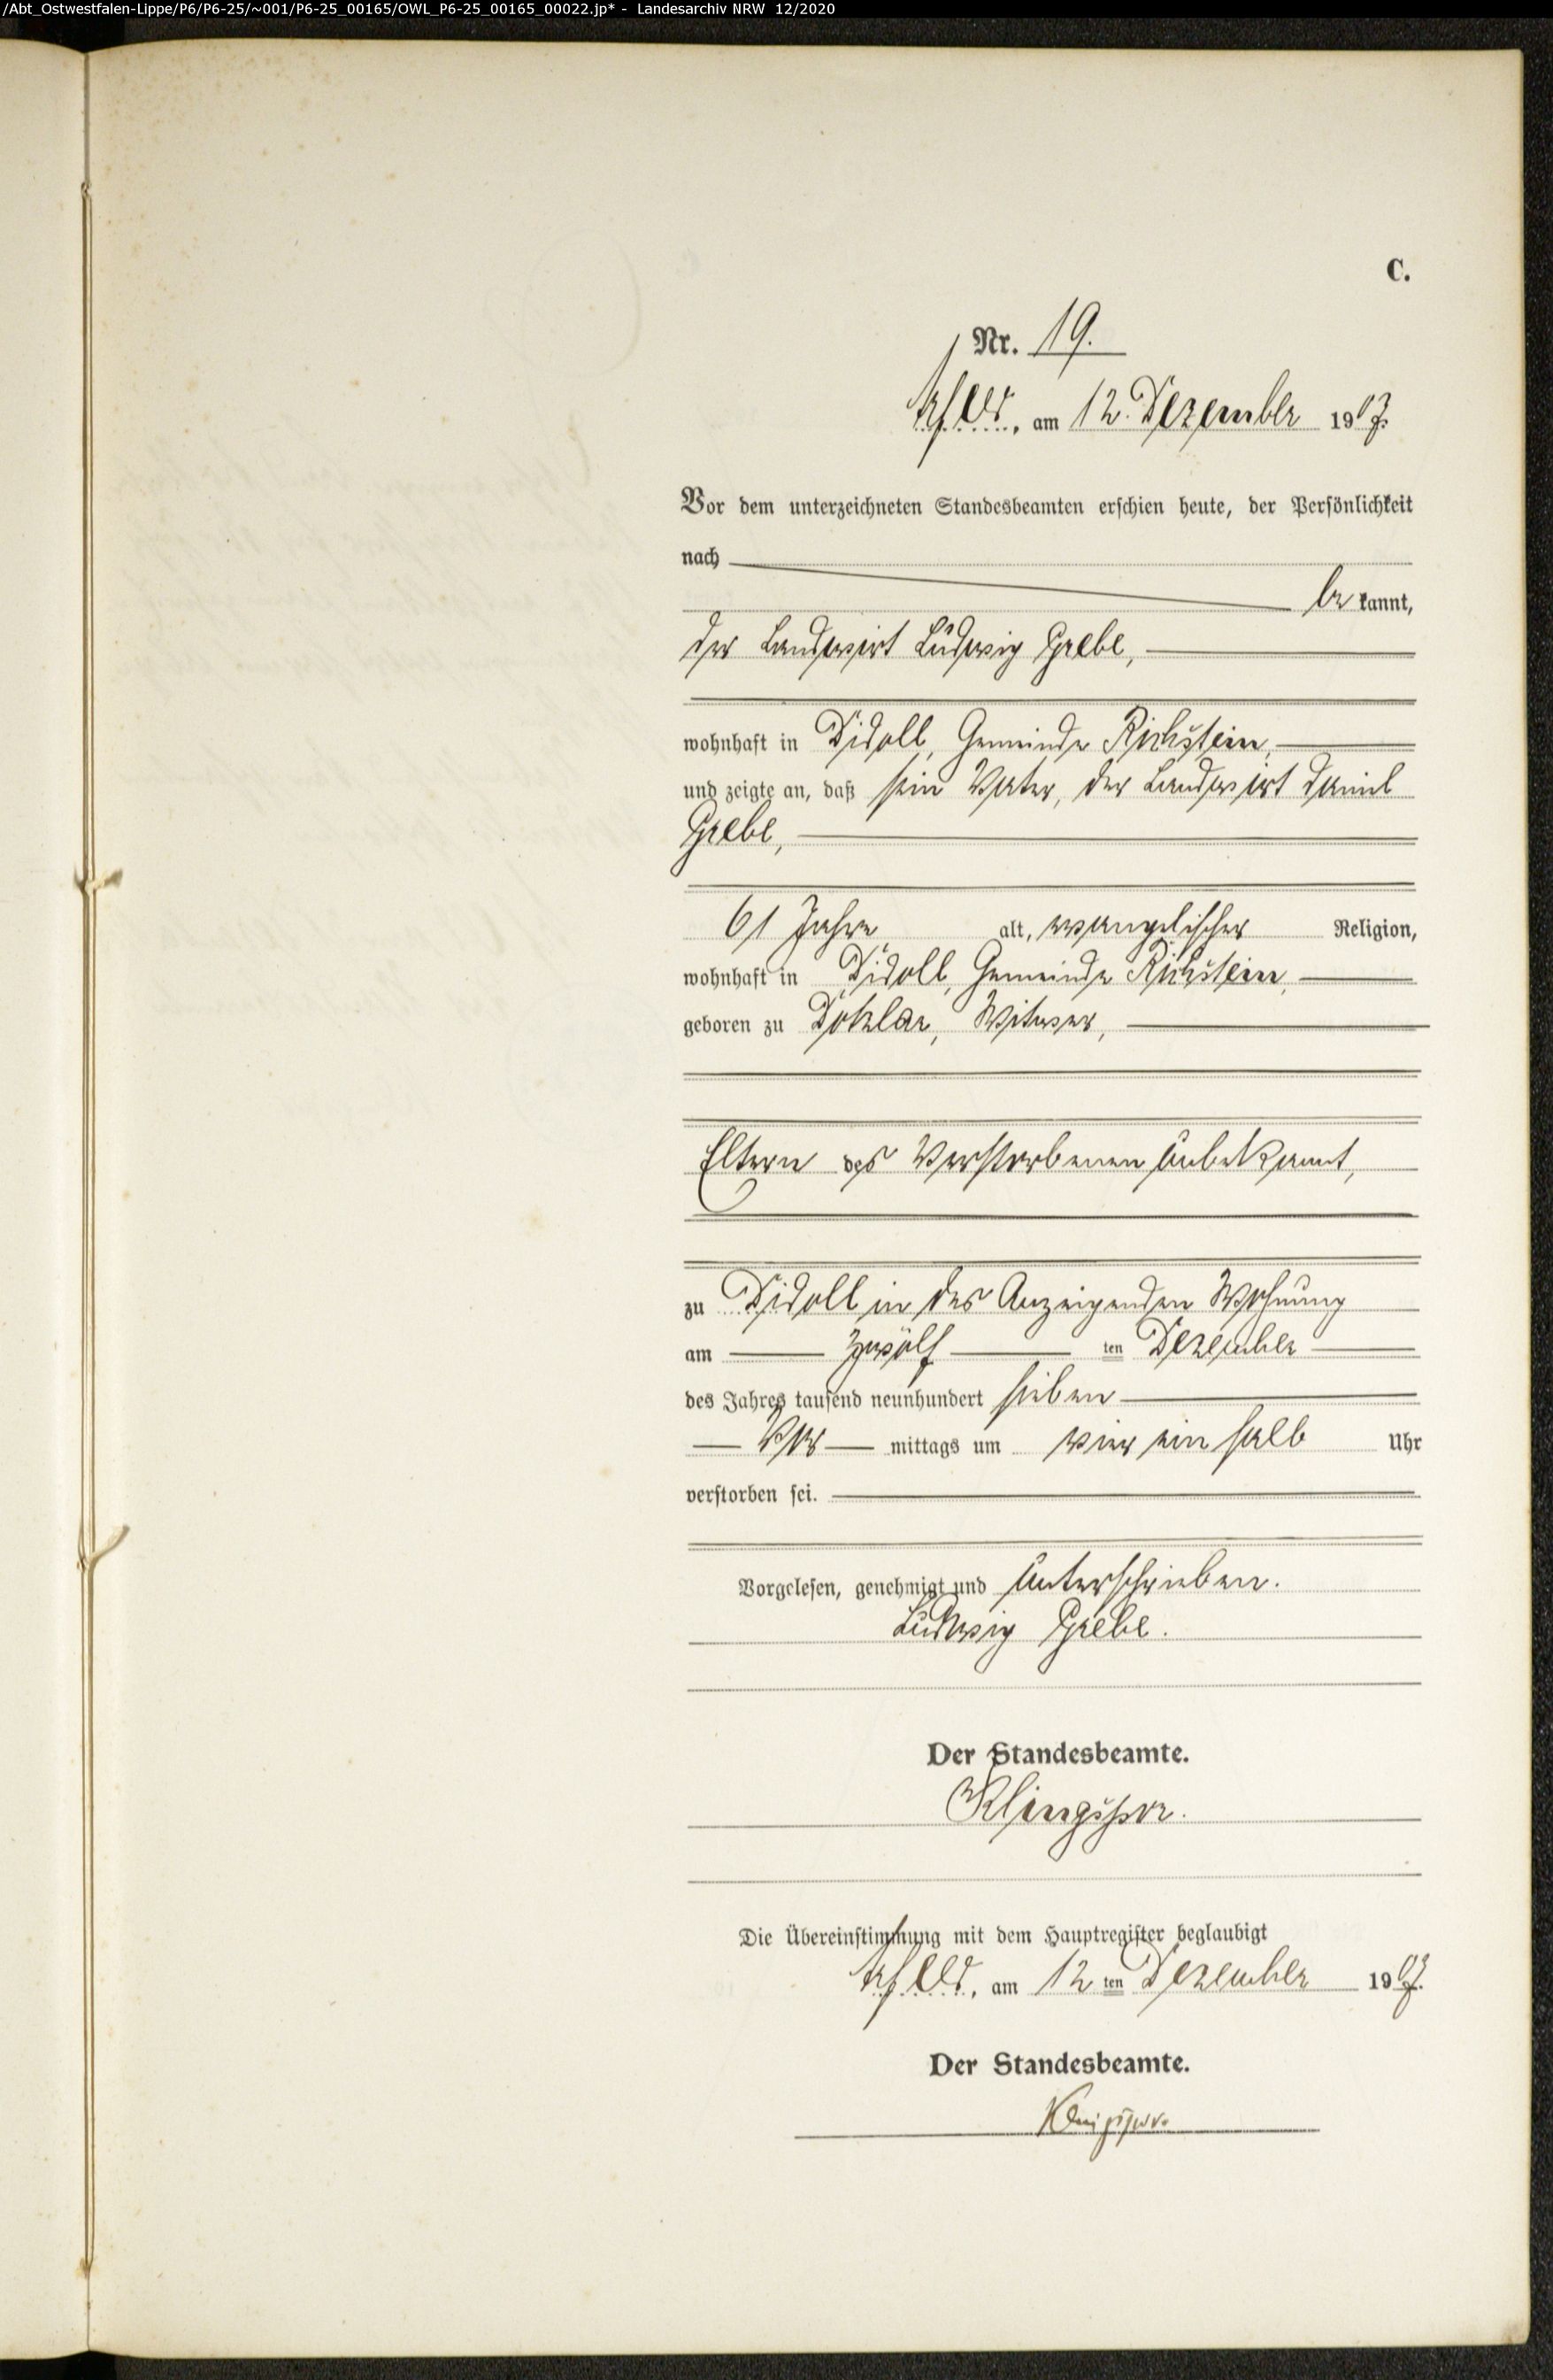 /Abt_Ostwestfalen-Lippe/P6/P6-25/~001/P6-25_00165/OWL_P6-25_00165_00022.jp* - Landesarchiv NRW 12/2020
C.
Nr. 19.
Arfeld, am 12. Dezember 1907.
Vor dem unterzeichneten Standesbeamten erschien heute, der Persönlichkeit
nach
be kannt,
der Landwirt Ludwig Grebe,
wohnhaft in Didoll, Gemeinde Richstein,
und zeigte an, daß sein Vater, der Landwirt Daniel
Grebe,
61 Jahre alt, evangelischer Religion,
wohnhaft in Didoll, Gemeinde Richstein,
geboren zu Dotzlar, Witwer,
Eltern des Verstorbenen unbekannt,
zu Didoll in des Anzeigenden Wohnung
am zwölf ten Dezember
des Jahres tausend neunhundert sieben
Vor mittags um vier ein halb Uhr
verstorben sei.
Vorgelesen, genehmigt und unterschrieben.
Ludwig Grebe.
Der Standesbeamte.
Klingspor.
Die Übereinstimmung mit dem Hauptregister beglaubigt
Arfeld, am 12 ten Dezember 1907.
Der Standesbeamte.
Klingspor.